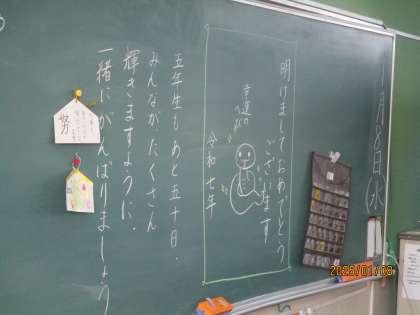 一月八日水
明けましておめでとう
ございます
幸運の
へび
令和七年
五年生もあと五十日。
みんながたくさん
輝きますように。
一緒にがんばりましょう
努
2025/01/08